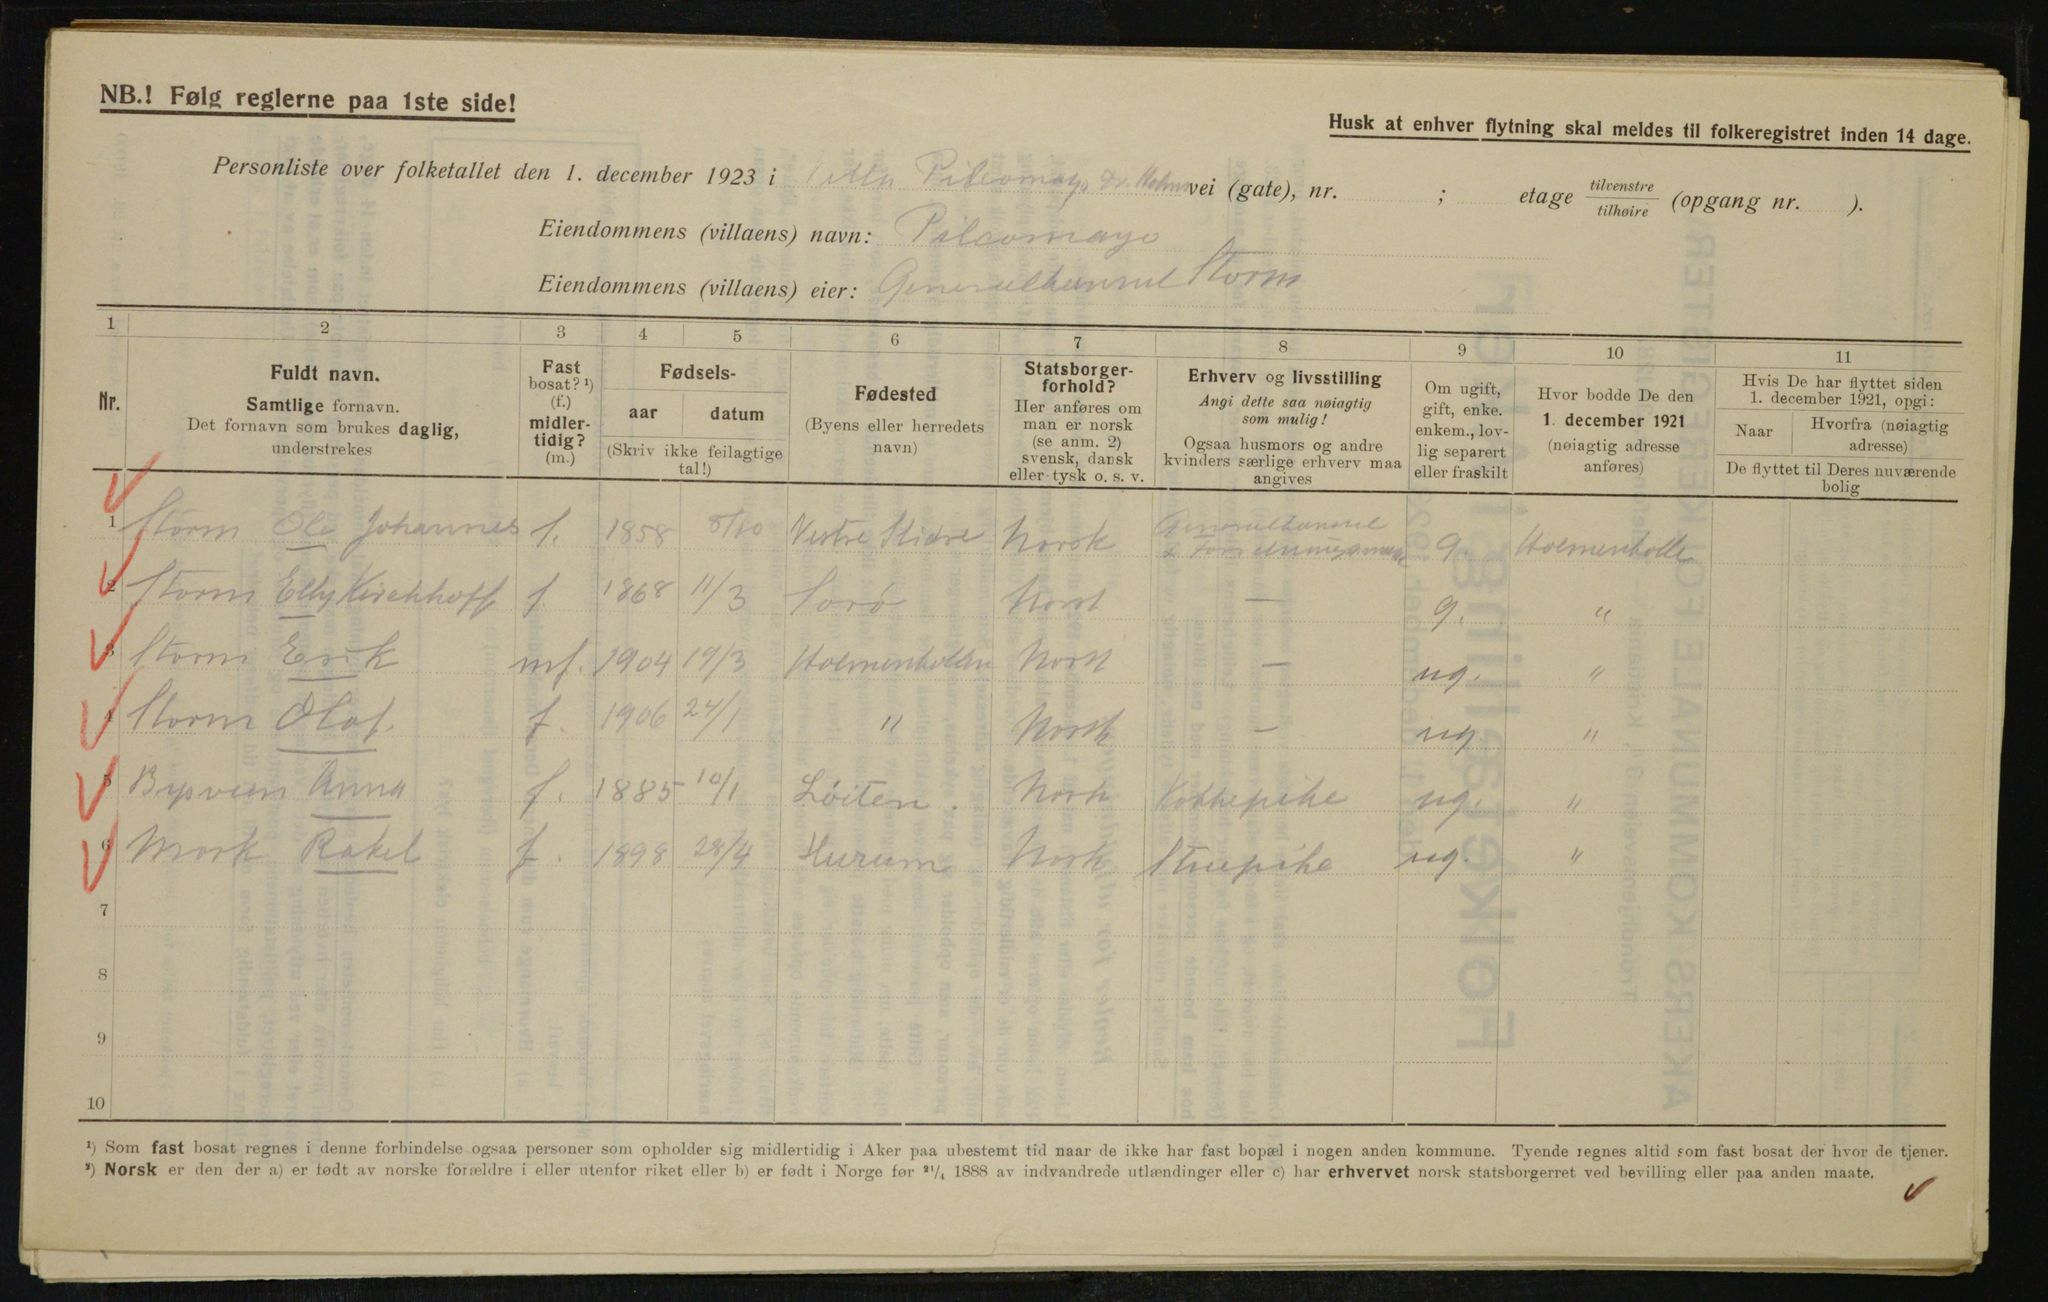 NB.! Følg reglerne paa 1ste side!
Husk at enhver flytning skal meldes til folkeregistret inden 14 dage.
Personliste over folketallet den 1. december 1923 i Villa Pilcomayo Dr. Holms vei (gate), nr. ; etage tilvenstre / tilhøire (opgang nr. ).
Eiendommens (villaens) navn: Pilcomayo
Eiendommens (villaens) eier: Generalkonsul Storm
1 2 3 4 5 6 7 8 9 10 11
Nr.
Fuldt navn.
Samtlige fornavn.
Det fornavn som brukes daglig,
understrekes
Fast
bosat? ¹)
(f.)
midler-
tidig?
(m.)
Fødsels-
aar datum
(Skriv ikke feilagtige
tal!)
Fødested
(Byens eller herredets
navn)
Statsborger-
forhold?
Her anføres om
man er norsk
(se anm. 2)
svensk, dansk
eller tysk o. s. v.
Erhverv og livsstilling
Angi dette saa nøiagtig
som mulig!
Ogsaa husmors og andre
kvinders særlige erhverv maa
angives
Om ugift,
gift, enke.
enkem., lov-
lig separert
eller fraskilt
Hvor bodde De den
1. december 1921
(nøiagtig adresse
anføres)
Hvis De har flyttet siden
1. december 1921, opgi:
Naar
Hvorfra (nøiagtig
adresse)
De flyttet til Deres nuværende
bolig
1 Storm Ole Johannes f. 1858 8/10 Vestre Slidre Norsk Generalkonsul & g. Holmenkollen
2 Storm Elly Kirchhoff f. 1868 11/3 Sorø Norsk — g. "
3 Storm Erik mf. 1904 19/3 Holmenkollen Norsk — ug. "
4 Storm Olaf. f. 1906 24/1 " Norsk — ug. "
5 Bysveen Anna f. 1885 10/1 Løiten. Norsk Kokkepike ug. "
6 Mork Rakel f. 1898 28/4 Hurum Norsk Stuepike ug. "
7
8
9
10
¹) Som fast bosat regnes i denne forbindelse ogsaa personer som opholder sig midlertidig i Aker paa ubestemt tid naar de ikke har fast bopæl i nogen anden kommune. Tyende regnes altid som fast bosat der hvor de tjener.
²) Norsk er den der a) er født av norske forældre i eller utenfor riket eller b) er født i Norge før ²¹/₄ 1888 av indvandrede utlændinger eller c) har erhvervet norsk statsborgerret ved bevilling eller paa anden maate.